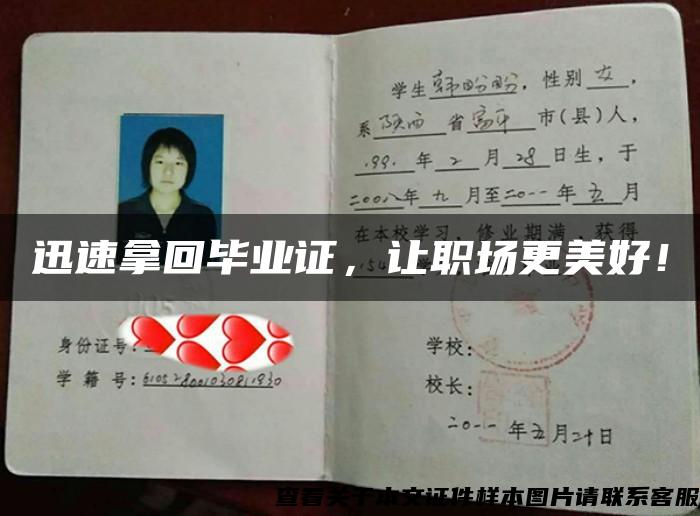 学生韩盼盼，性别女，
系陕西省富平市(县)人，
1991年2月28日生，于
二00八年九月至二0一一年五月
在本校学习，修业期满，获得
154学
迅速拿回毕业证，让职场更美好！
身份证号：
学籍号：
学校：
校长：
二0一一年五月二十日
查看关于本文证件样本图片请联系客服